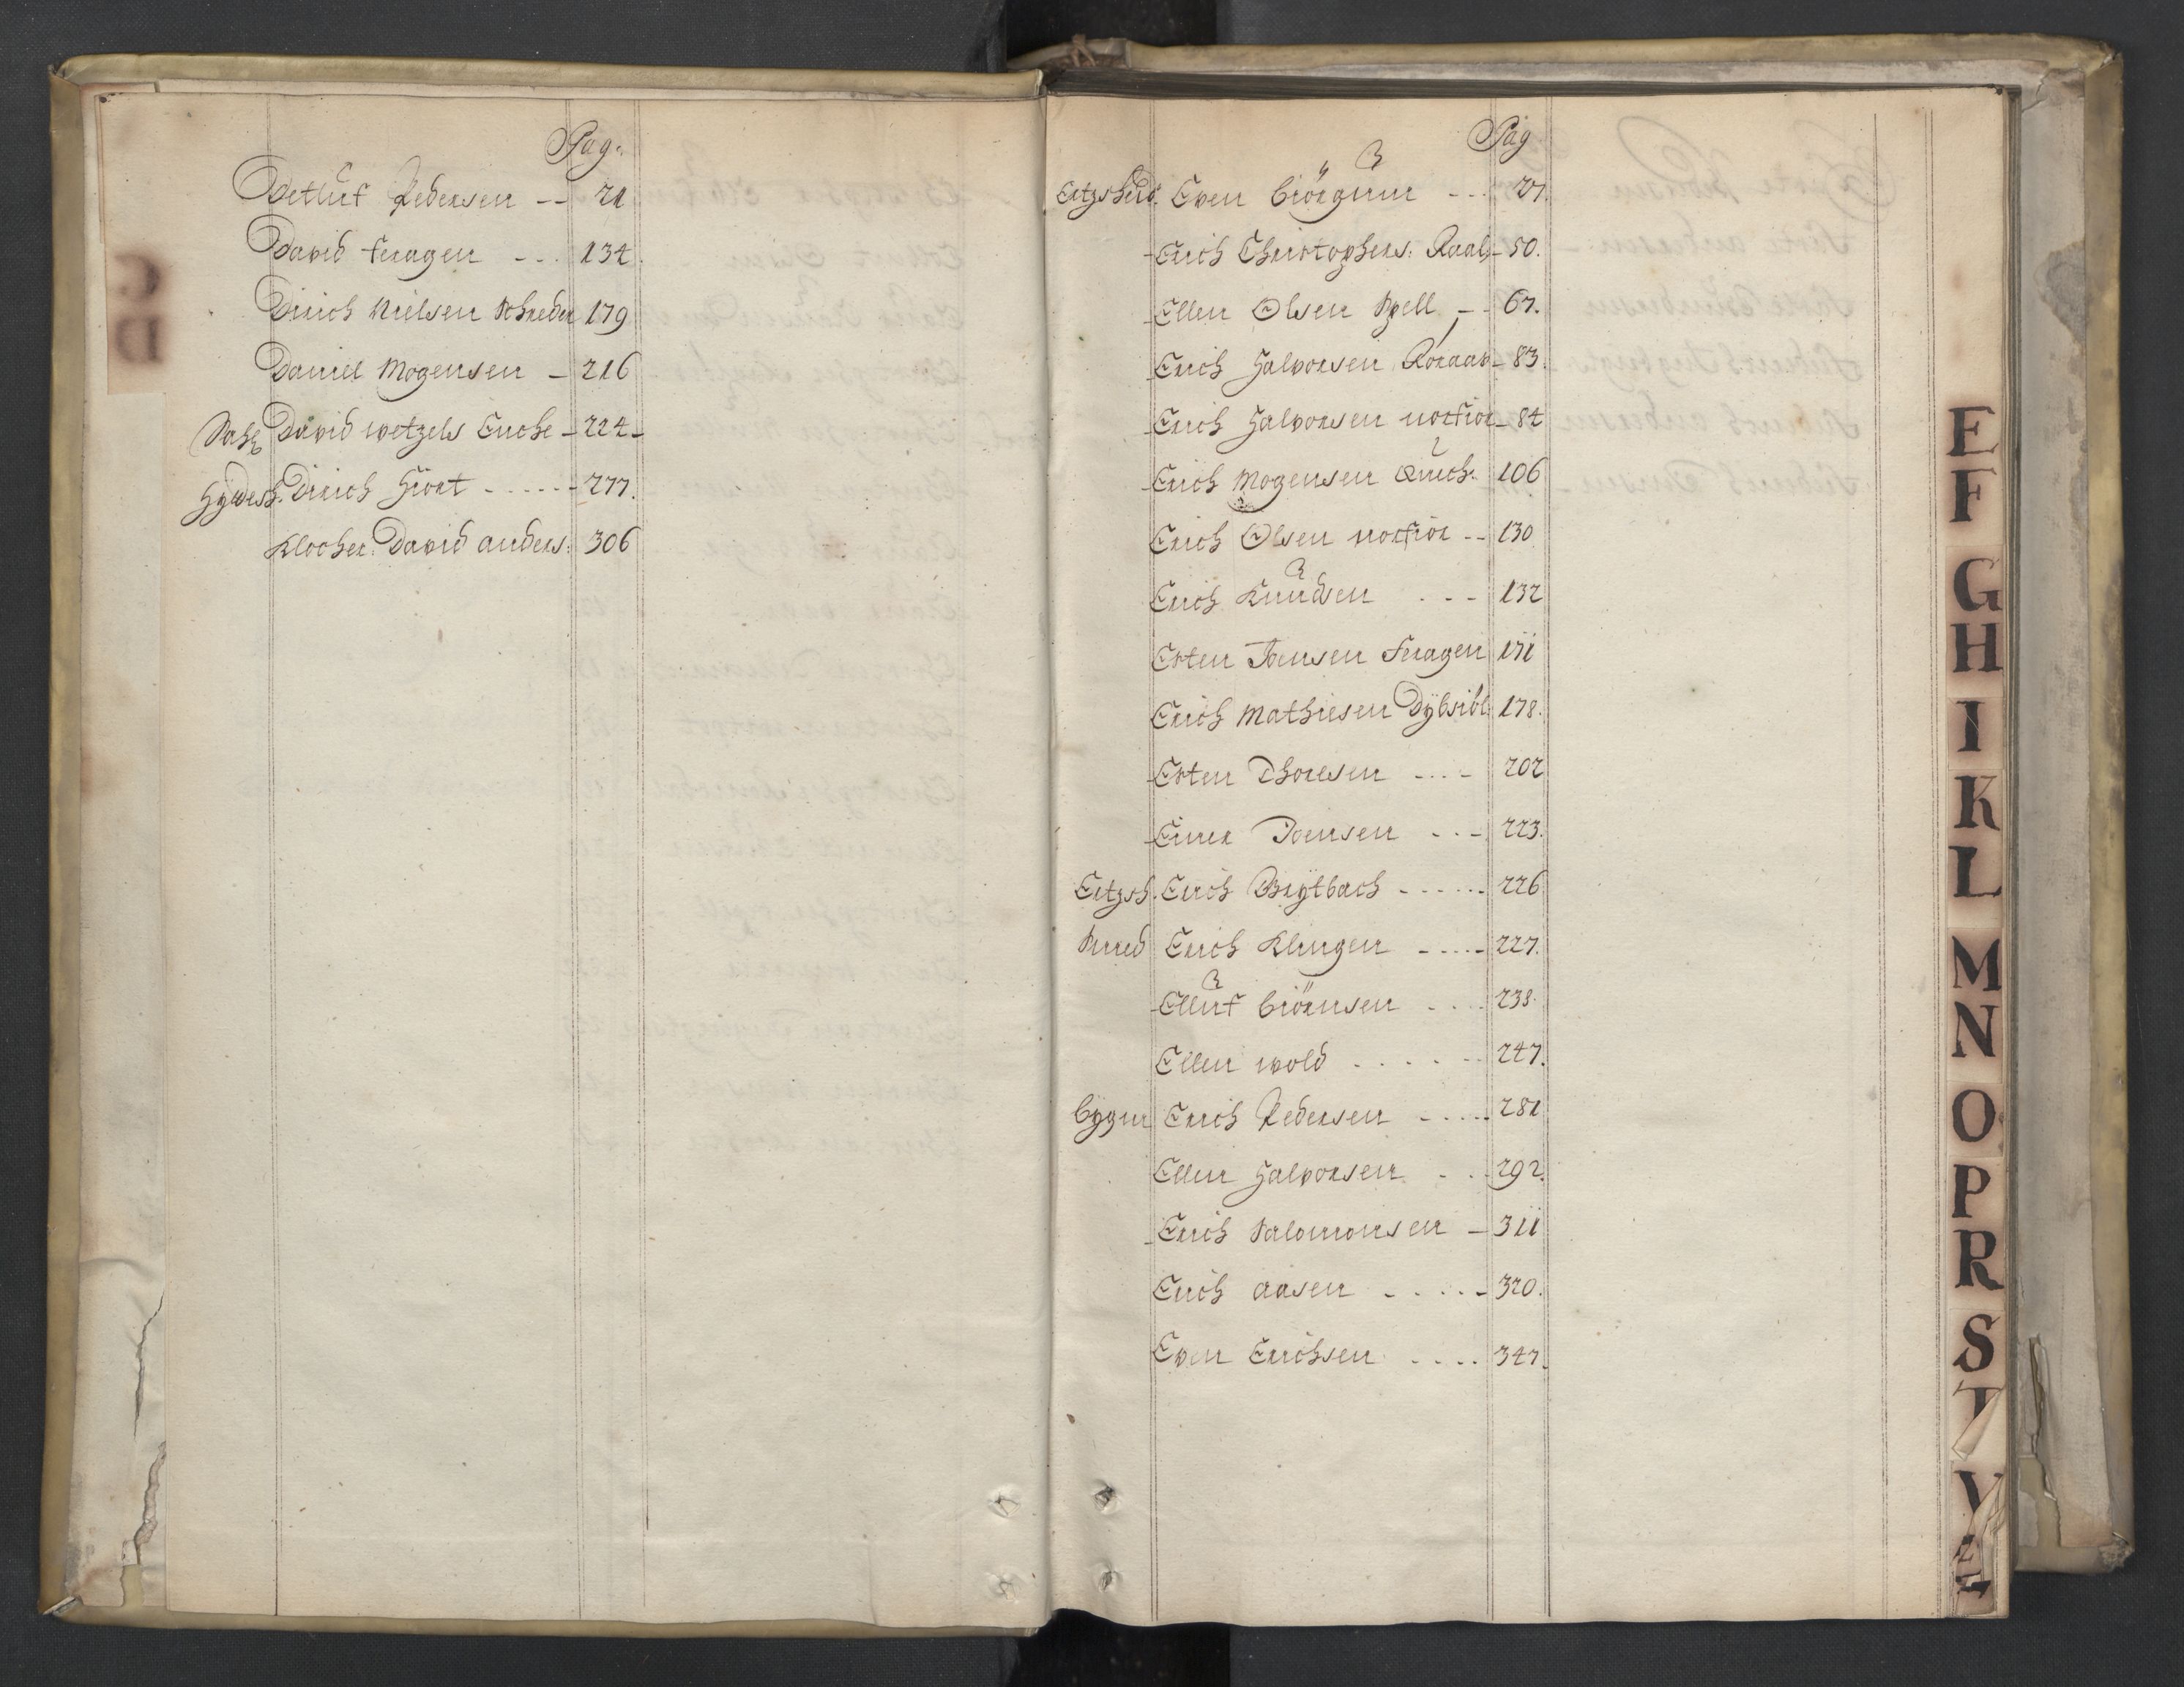 Pag.
Detluf Pedersen -- 21
David feragen --- 134.
Dirich Nielsen Schreder 179
Daniel Mogensen - 216
David wetzels Enche - 224-
Hydesh. Dirich Hiort ------ 277.
Klocher. David anders: 306
Pag
Ertzshud. Even biörgum --- 27.
Erich Christophers: Raal - 50.
Ellen Olsen Spell -- 67.
Erich Halvorsen Röraas - 83.
Erich Halvorsen norfiör - 84
Erich Mogensen Quech: 106
Erich Olsen norfiör -- 130
Erich Knudsen --- 132
Esten Joensen feragen 171
Erich Mathiesen Dybsibl: 178.
Esten Thoresen ---- 202
Einer Joensen --- 223.
Ertzsh. Erich Brytbach ------ 226
Smed Erich Klingen ----- 227.
Elluf biörnsen .... 238.
Ellen wold ...... 247.
bygm Erich Pedersen ----- 281
Ellen Halvorsen ... 292.
Erich Salomonsen - 311
Erich aasen ----- 320.
Even Erichsen .... 347.
E
F
G
H
I
K
L
M
N
O
P
R
S
T
V